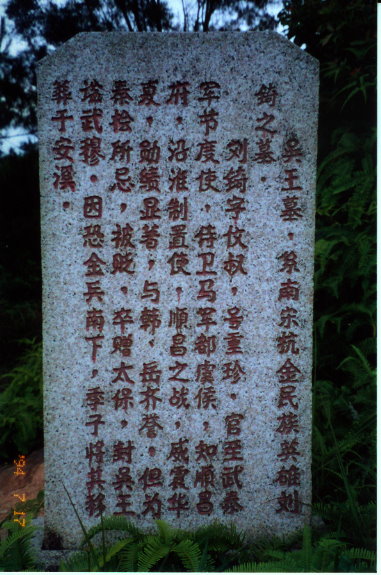 吴王墓，系南宋抗金民族英雄刘
锜之墓。
刘锜字伩叔，号重珍，官至武泰
军节度使，侍卫马军都虞侯，知顺昌
府，沿淮制置使，顺昌之战，威震华
夏，勋绩显著，与韩、岳齐誉，但为
秦桧所忌，被贬，卒赠太保，封吴王
谥武穆。因恐金兵南下，季子将其移
葬于安溪。
'94 7 17